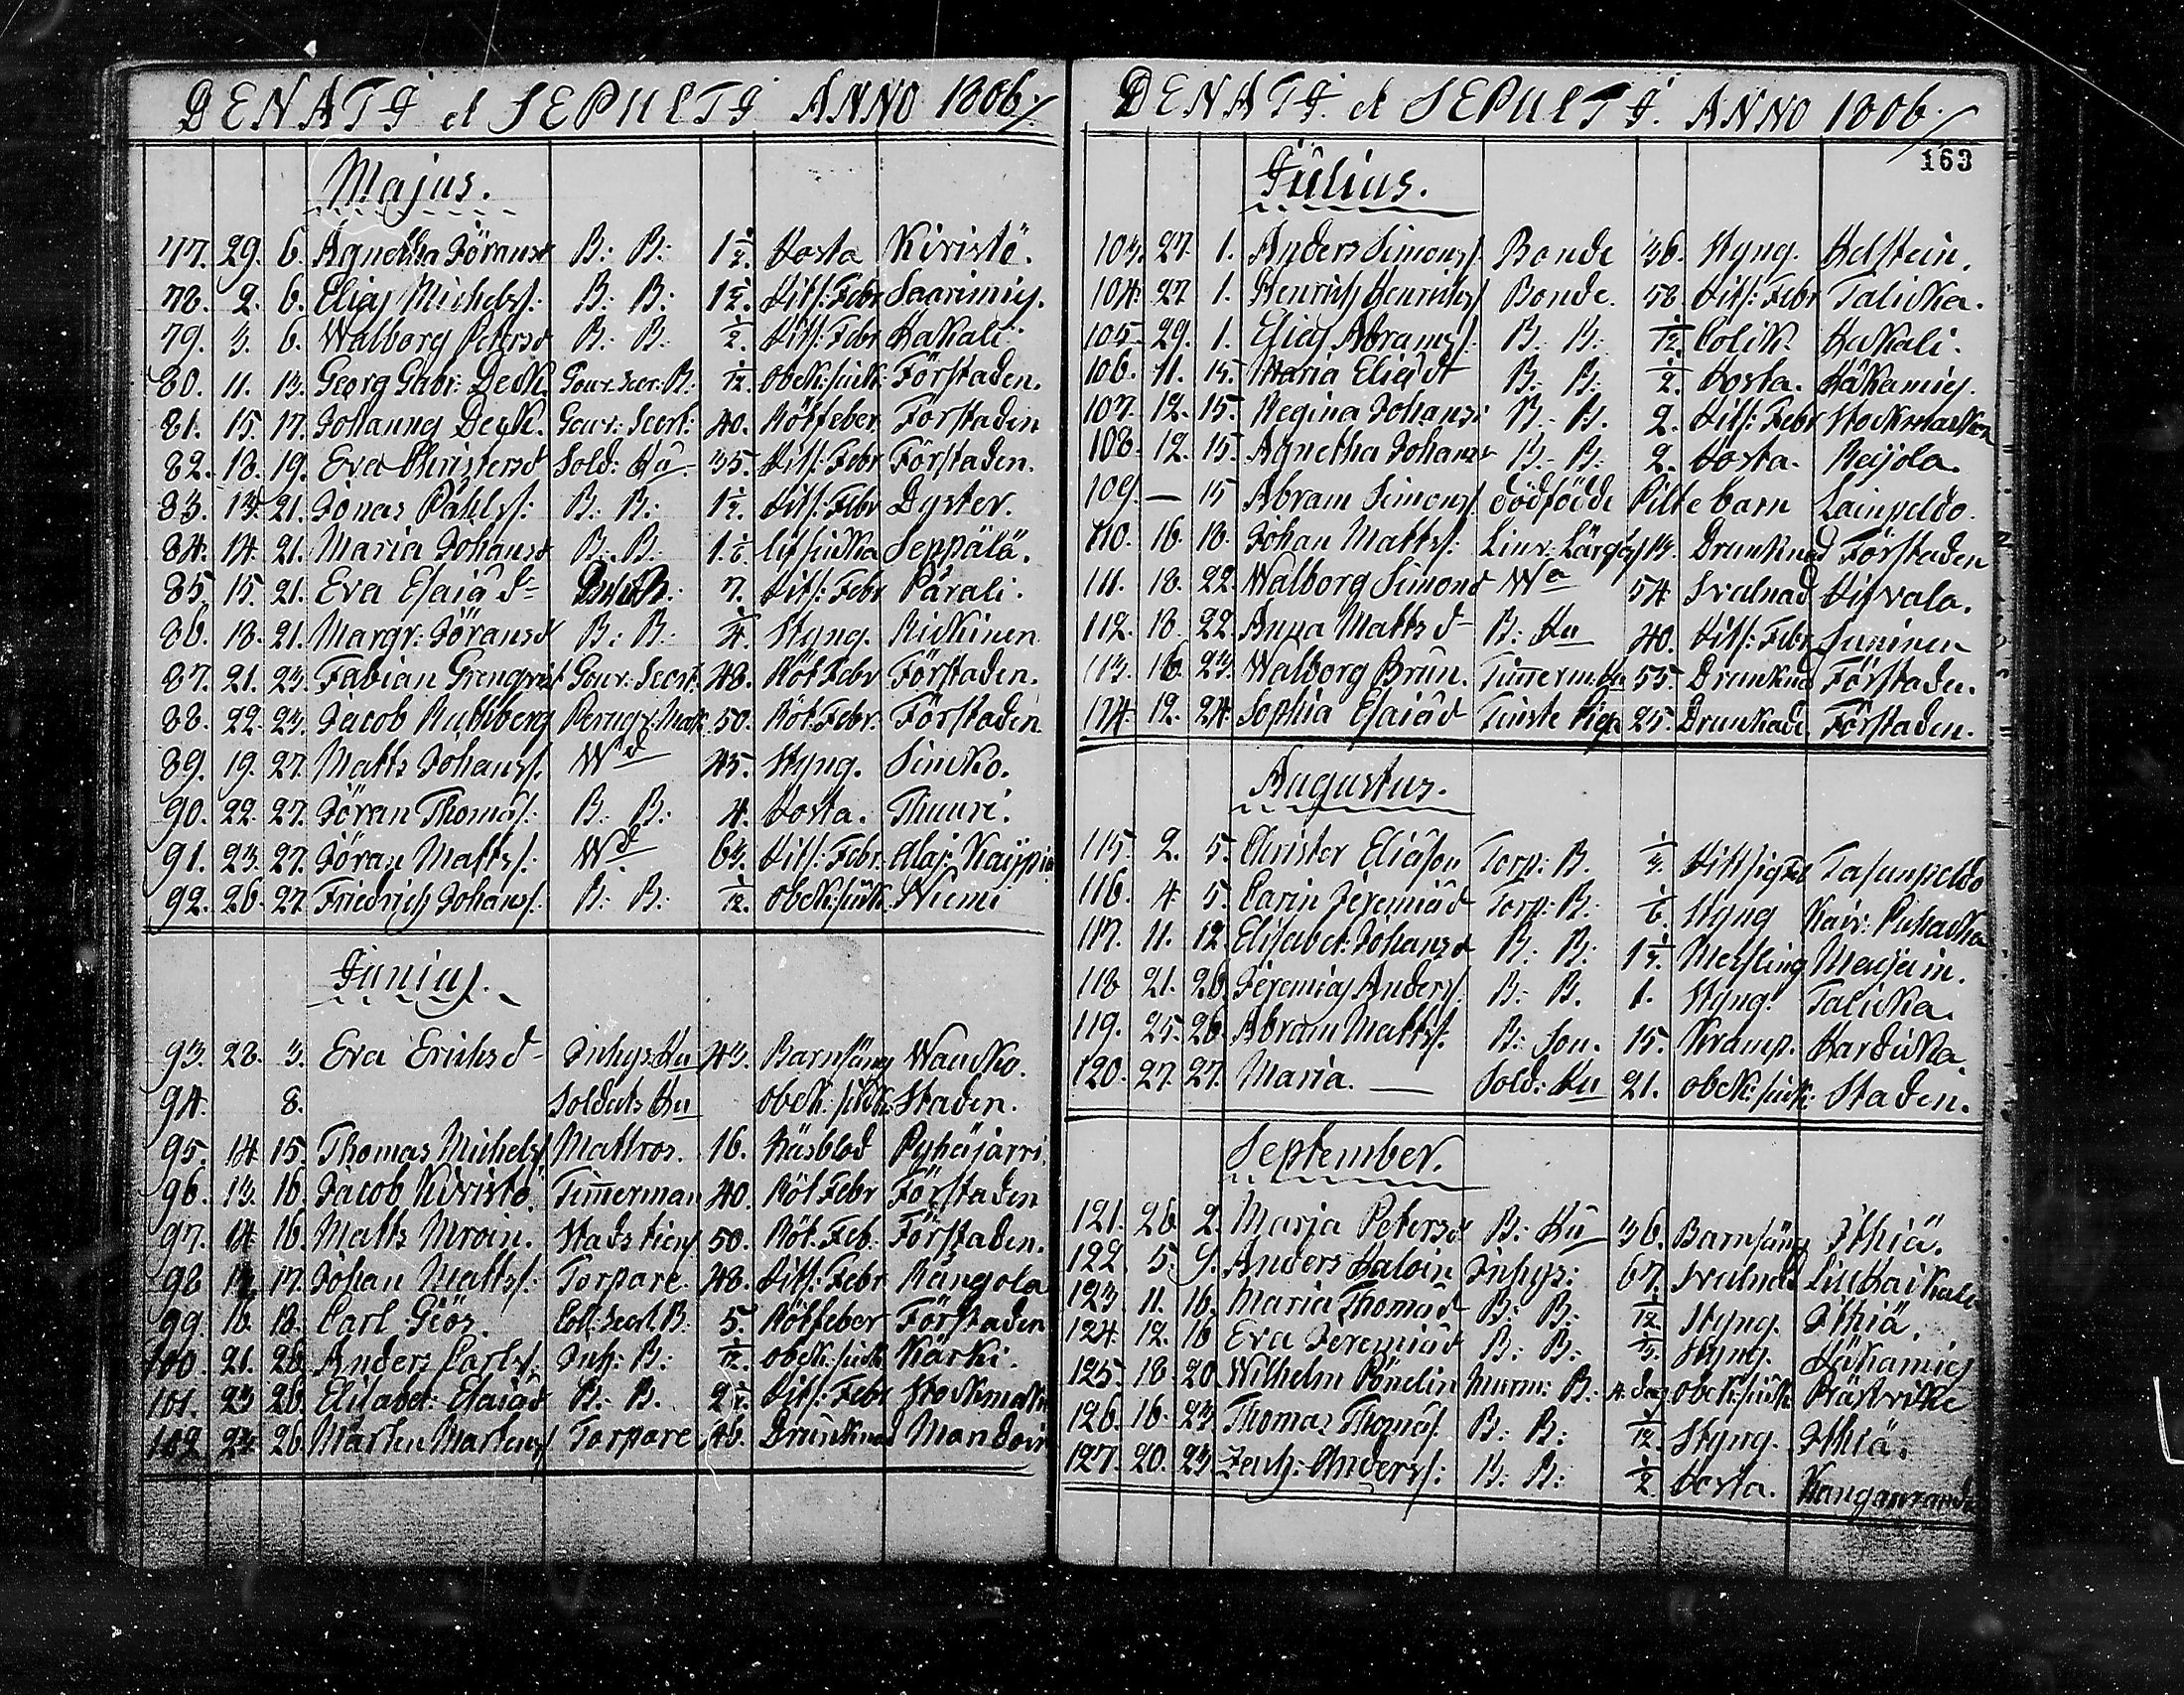 DENATI et SEPULTI ANNO 1806.
Majus.
77. 29. 6. Agnetha Jöransd B: B: 1 1/2. Hosta Kiristö.
78. 2. 6. Elias Michelss: B: B: 1 1/2. Hits: Febr Saarimies.
79. 3. 6. Walborg Petersd B: B: 1/2. Hits: Febr Kakali.
80. 11. 13. Georg Gabr: Deck. Gouv: Secr: B: 1/12. obek: siuk: Förstaden.
81. 15. 17. Johannes Deck. Gouv: Secrt: 40. Rötfeber Förstaden
82. 18. 19. Eva Christersd Sold: Hu 35. Hits: Febr Förstaden.
83. 13. 21. Jonas Påhlss: B: B: 1 1/2. Hits: Febr Dyster.
84. 14. 21. Maria Johansd B: B: 1 1/6. Seppälä.
85. 15. 21. Eva Esaiæd 7. Hits: Febr Pärali.
86. 18. 21. Margr: Jöransd B: B: 1/4. Styng. Rickinen
87. 21. 23. Fabian Grenqvist Gouv: Secrt: 48. Röt Febr Förstaden.
88. 22. 23. Jacob Ruthberg Peruqs: Mak 50. Röt: Febr. Förstaden
89. 19. 27. Matts Johanss. Wd 45. Styng. Sincko.
90. 22. 27. Jöran Thomæs: B: B: 4. Hosta. Thuuri.
91. 23. 27. Jöran Mattss: Wd 63. Hits: Febr. Alaj: Kaippia
92. 26. 27. Friedrich Johanss: B: B: 1/12. obek: siuk. Niemi
Junius.
93. 28. 3. Eva Erichsd Inhys Hu 43. Barnsäng Waucko.
94. 8. Soldats Hu obek: siukd: Staden.
95. 14. 15. Thomas Michelss Mattros. 16. Pyhäjärvi.
96. 13. 16. Jacob Kiristö. Timmerman 40. Röt Febr Förstaden
97. 14 16. Matts Mroin. Stads tien 50. Röt. Feb. Förstaden.
98 14. 17. Johan Mattss: Torpare. 48. Hits: Febr Rangola
99. 16. 18. Carl Giös. Coll: Secrt B: 5. Rötfeber Förstaden
100. 21. 26. Anders Carlss: Inh: B: 1/12. obek: siuk Kärki.
101. 23 26. Elisabet: Esaiæd B: B. 2 1/2. Hits: Febr Stockmake
102. 24 26. Mårten Mårtenss Torpare 46. Drunknad Mondoin
DENATI. et SEPULTI. ANNO 1806.
163
Julius.
103. 27. 1. Anders Simonss Bonde 36. Styng. Helstein.
104. 27 1. Henrich Henrichss Bonde. 58 Hits: Febr Talicka.
105. 29. 1. Elias Abramss: B: B: 1/12. Colik. Kukali.
106. 11. 15. Maria Eliæd B: B: 1/2. Hosta. Häkamies.
107. 12. 15. Regina Johansd B: B. 2. Hits: Febr Stockmacken
108. 12. 15. Agnetha Johansd B: B: 2. Hosta. Reijola.
109. — 15 Abram Simonss dödfödde Pilte barn Lainpeldo.
110. 16. 18. Johan Mattss: Drunknad Förstaden
111. 18. 22. Walborg Simonsd Wa 54 Svulnad Hirvala.
112. 18. 22. Anna Mattsd B: Hu 40. Hits: Febr Suninen
113. 16. 23. Walborg Brun. Timmerm: Hu 55. Drunknad Förstaden.
114. 12. 24. Sophia Esaiæd Tienste Piga 25. Drunknad. Förstaden.
Augustus.
115. 2. 5. Christer Eliæson Torp: B. 1/3. Tasunpeldo
116. 4 5. Carin Jeremiæd Torp: B: 1/6. Styng Karv: Puhacka
117. 11. 12. Elisabet: Johansd B: B: 1 1/2. Messling Meijain.
118 21. 26. Jeremias Anderss B: B. 1. Styng. Talicka.
119. 25. 26. Abram Mattss. B: Son. 15. Kramp. Hardicka.
120. 27. 27. Maria. — Sold: Hu 21. obek: siuk: Staden.
September.
121. 26 2. Maria Petersd B: Hu 36. Barnsäng Ithiä.
122. 5. 9. Anders Haloin Inhys: 67. Svulnad Liukaikale
123 11. 16. Maria Thomæd B: B: 1/12. Styng. Ithiä.
124. 12. 16 Eva Jeremiæd B: B: 1/3. Styng. Häkamies
125. 18. 20. Wilhelm Pönelin Murm: B: 4. dag obek: siuk Prästvike
126. 16. 23 Thomas Thomæs: B: B: 1/12. Styng. Ithiä.
127. 20. 23 Zach: Anderss: B: B: 1/2. Hosta. Kanganranda